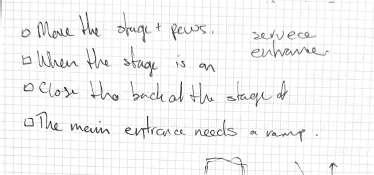 Move the stage + pews.
service
entrance
When the stage is on
Close the back of the stage
The main entrance needs a ramp.